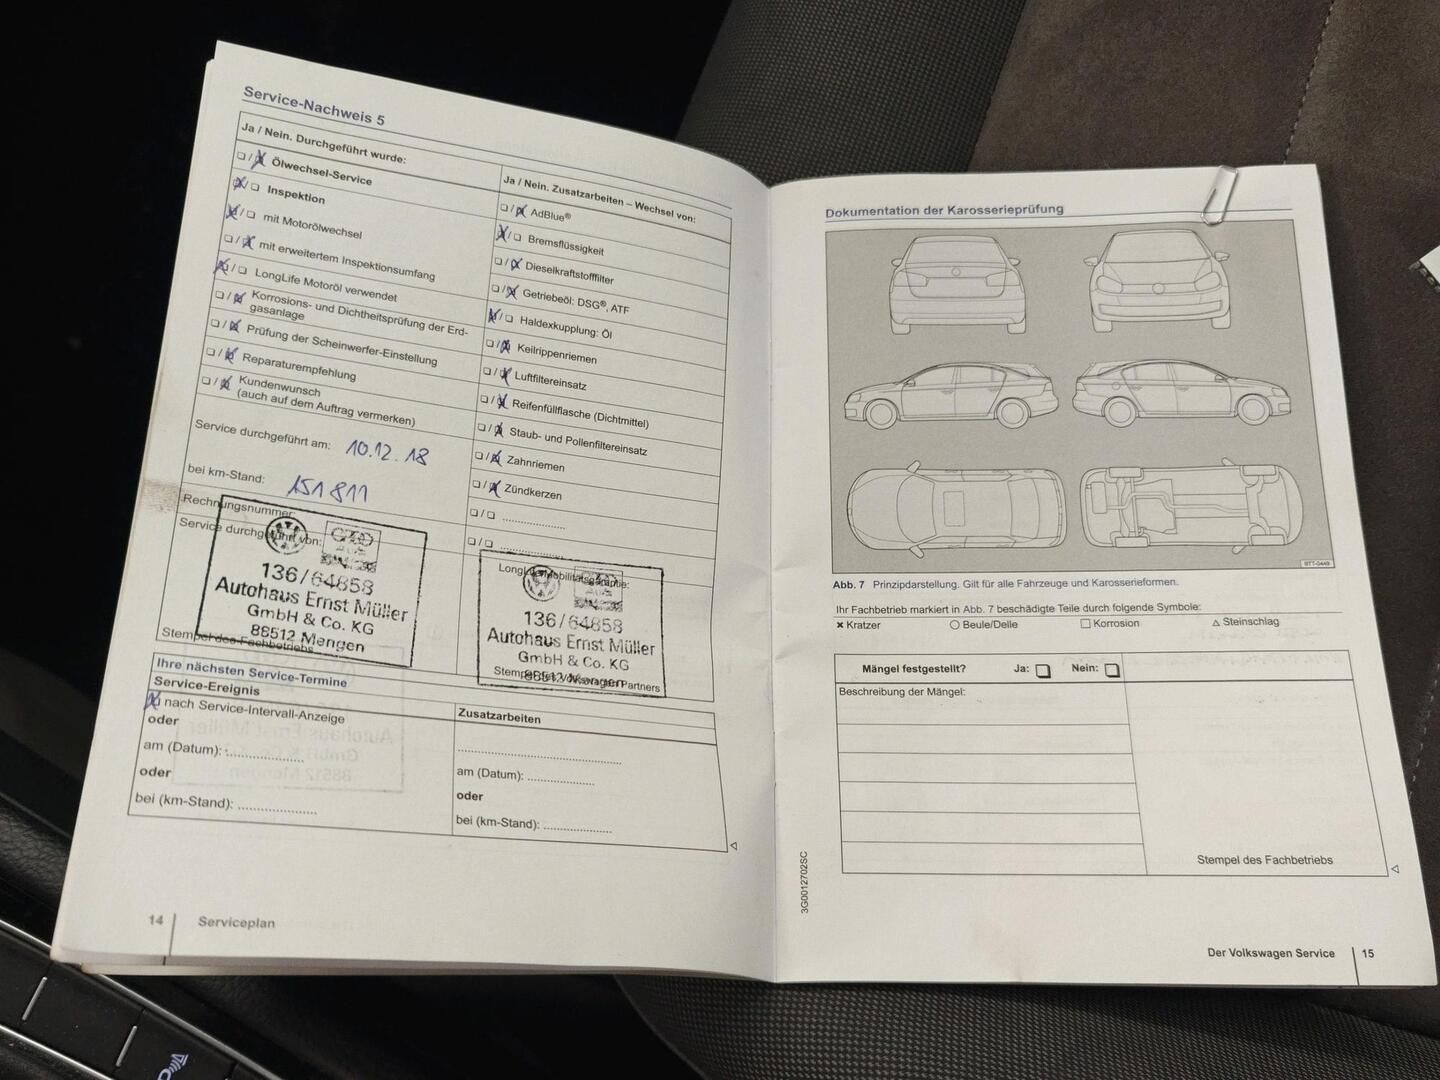 Service-Nachweis 5
Ja / Nein. Durchgeführt wurde:
Ölwechsel-Service
Inspektion
mit Motorölwechsel
mit erweitertem Inspektionsumfang
LongLife Motoröl verwendet
Korrosions- und Dichtheitsprüfung der Erd-
gasanlage
Prüfung der Scheinwerfer-Einstellung
Reparaturempfehlung
Kundenwunsch
(auch auf dem Auftrag vermerken)
Service durchgeführt am: 10.12.18
bei km-Stand: 151 811
Rechnungsnummer:
Service durchgeführt von:
136/64858
Autohaus Ernst Müller
GmbH & Co. KG
88512 Mengen
Stempel des Fachbetriebs
Ja / Nein. Zusatzarbeiten – Wechsel von:
AdBlue®
Bremsflüssigkeit
Dieselkraftstofffilter
Getriebeöl: DSG®, ATF
Haldexkupplung: Öl
Keilrippenriemen
Luftfiltereinsatz
Reifenfüllflasche (Dichtmittel)
Staub- und Pollenfiltereinsatz
Zahnriemen
Zündkerzen
136/64858
Autohaus Ernst Müller
GmbH & Co. KG
88512 Mengen
Ihre nächsten Service-Termine
Service-Ereignis
nach Service-Intervall-Anzeige
oder
am (Datum):
oder
bei (km-Stand):
Zusatzarbeiten
am (Datum):
oder
bei (km-Stand):
14 Serviceplan
Dokumentation der Karosserieprüfung
BTT-0449
Abb. 7 Prinzipdarstellung. Gilt für alle Fahrzeuge und Karosserieformen.
Ihr Fachbetrieb markiert in Abb. 7 beschädigte Teile durch folgende Symbole:
✖ Kratzer ○ Beule/Delle □ Korrosion △ Steinschlag
Mängel festgestellt? Ja: Nein:
Beschreibung der Mängel:
Stempel des Fachbetriebs
3G0012702SC
Der Volkswagen Service 15